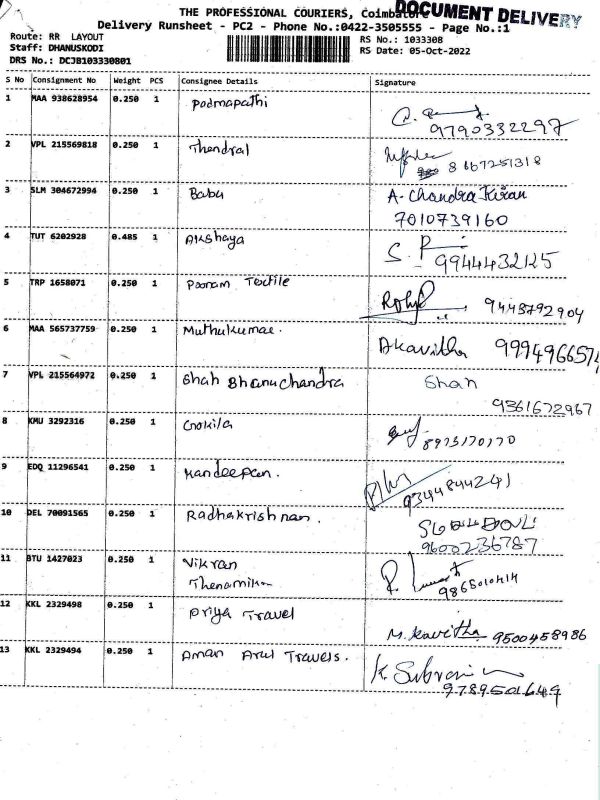 THE PROFESSIONAL COURIERS, Coimbatore
DOCUMENT DELIVERY
Delivery Runsheet - PC2 - Phone No.:0422-3505555 - Page No.:1
Route: RR LAYOUT
RS No.: 1033308
Staff: DHANUSKODI
RS Date: 05-Oct-2022
DRS No.: DCJB103330801
S No Consignment No Weight PCS Consignee Details Signature
1 MAA 938628954 0.250 1 Padmapathi
9790332297
2 VPL 215569818 0.250 1 Thendral
8667251318
3 SLM 304672994 0.250 1 Babu A. Chandra Kiran
7010739160
4 TUT 6202928 0.485 1 Akshaya
9944432125
5 TRP 1658071 0.250 1 Poonam Textile
9448792904
6 MAA 565737759 0.250 1 Muthukumar.
Akavitha 999496657
7 VPL 215564972 0.250 1 Shah Bhanuchandra Shah
9361672967
8 KMU 3292316 0.250 1 Gokila
8975170170
9 EDQ 11296541 0.250 1 Mandeepan.
9344844241
10 DEL 70091565 0.250 1 Radhakrishnan.
9600236787
11 BTU 1427023 0.250 1 Vikran
9865010414
12 KKL 2329498 0.250 1 Priya Travel
M. Kavitha 9500458986
13 KKL 2329494 0.250 1 Aman Arul Travels.
9789501649